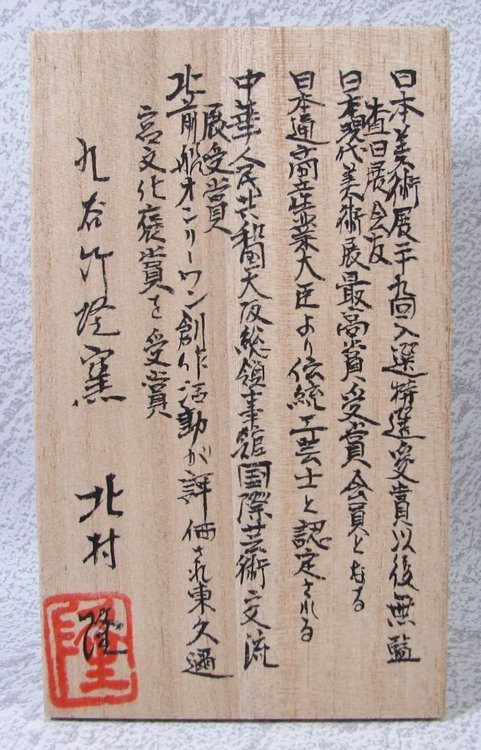 日本美術展二十九回入選特選受賞以後無監
査日展会友
日本現代美術展最高賞受賞会員となる
日本通商産業大臣より伝統工芸士と認定される
中華人民共和国大阪総領事館国際芸術交流
展受賞
北前船オンリーワン創作活動が評価され東久邇
宮文化褒賞を受賞
九谷竹隆窯 北村 隆
隆